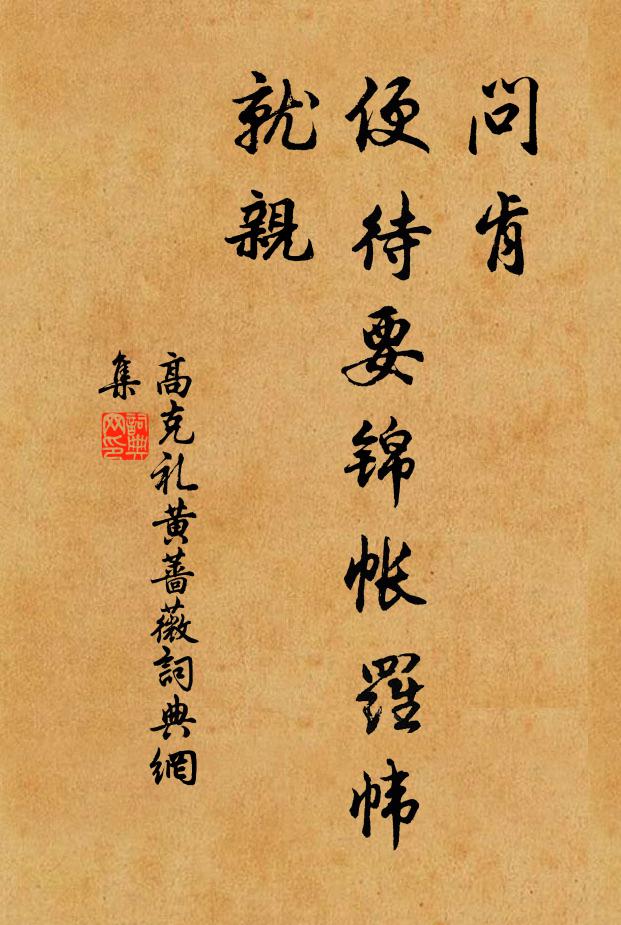 問肯
便待要锦帐羅帏
就親
高克礼黄薔薇詞典網
集
詞典
网印